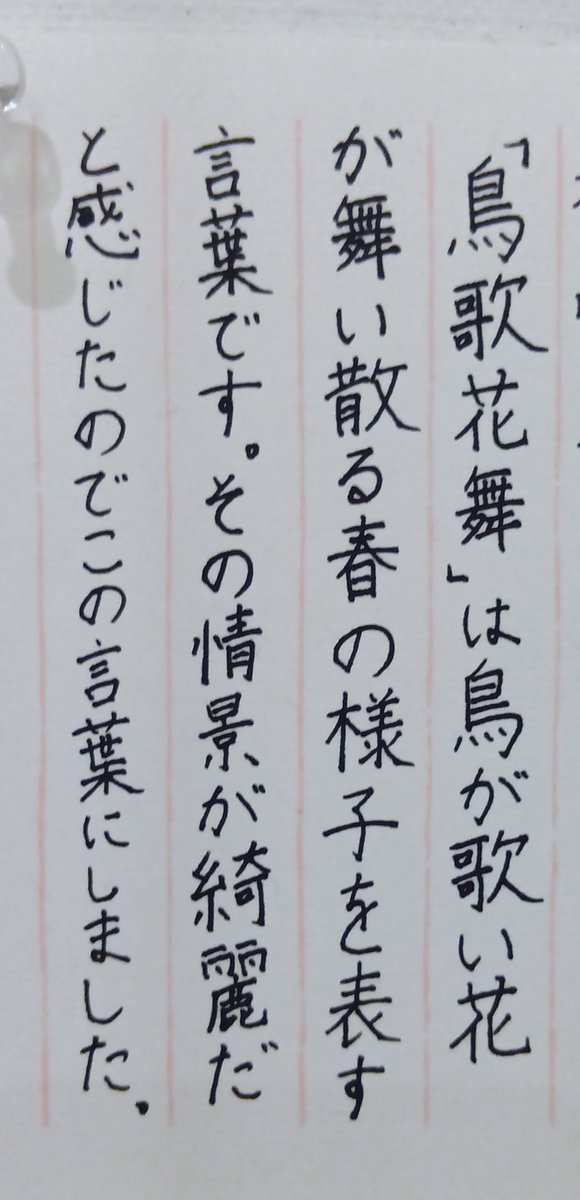 「鳥歌花舞」は鳥が歌い花
が舞い散る春の様子を表す
言葉です。その情景が綺麗だ
と感じたのでこの言葉にしました。